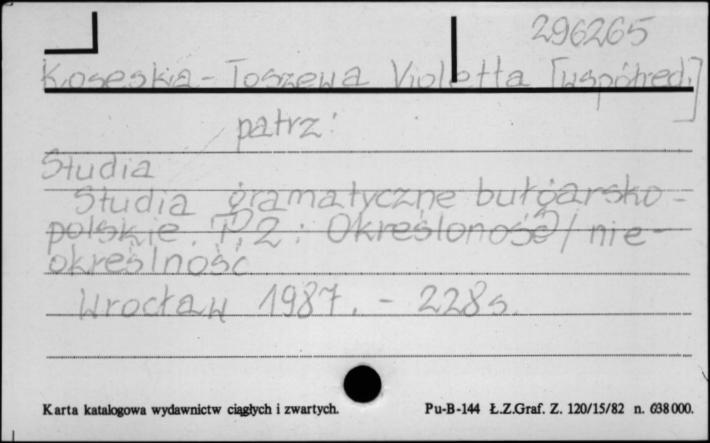 296265
Koseska-Toszewa Violetta [współred.]
patrz:
Studia
Studia gramatyczne bułgarsko-
polskie. T. 2: Określoność/nie-
określność
Wrocław 1987. - 228 s.
Karta katalogowa wydawnictw ciągłych i zwartych.
Pu-B-144 Ł.Z.Graf. Z. 120/15/82 n. 638 000.